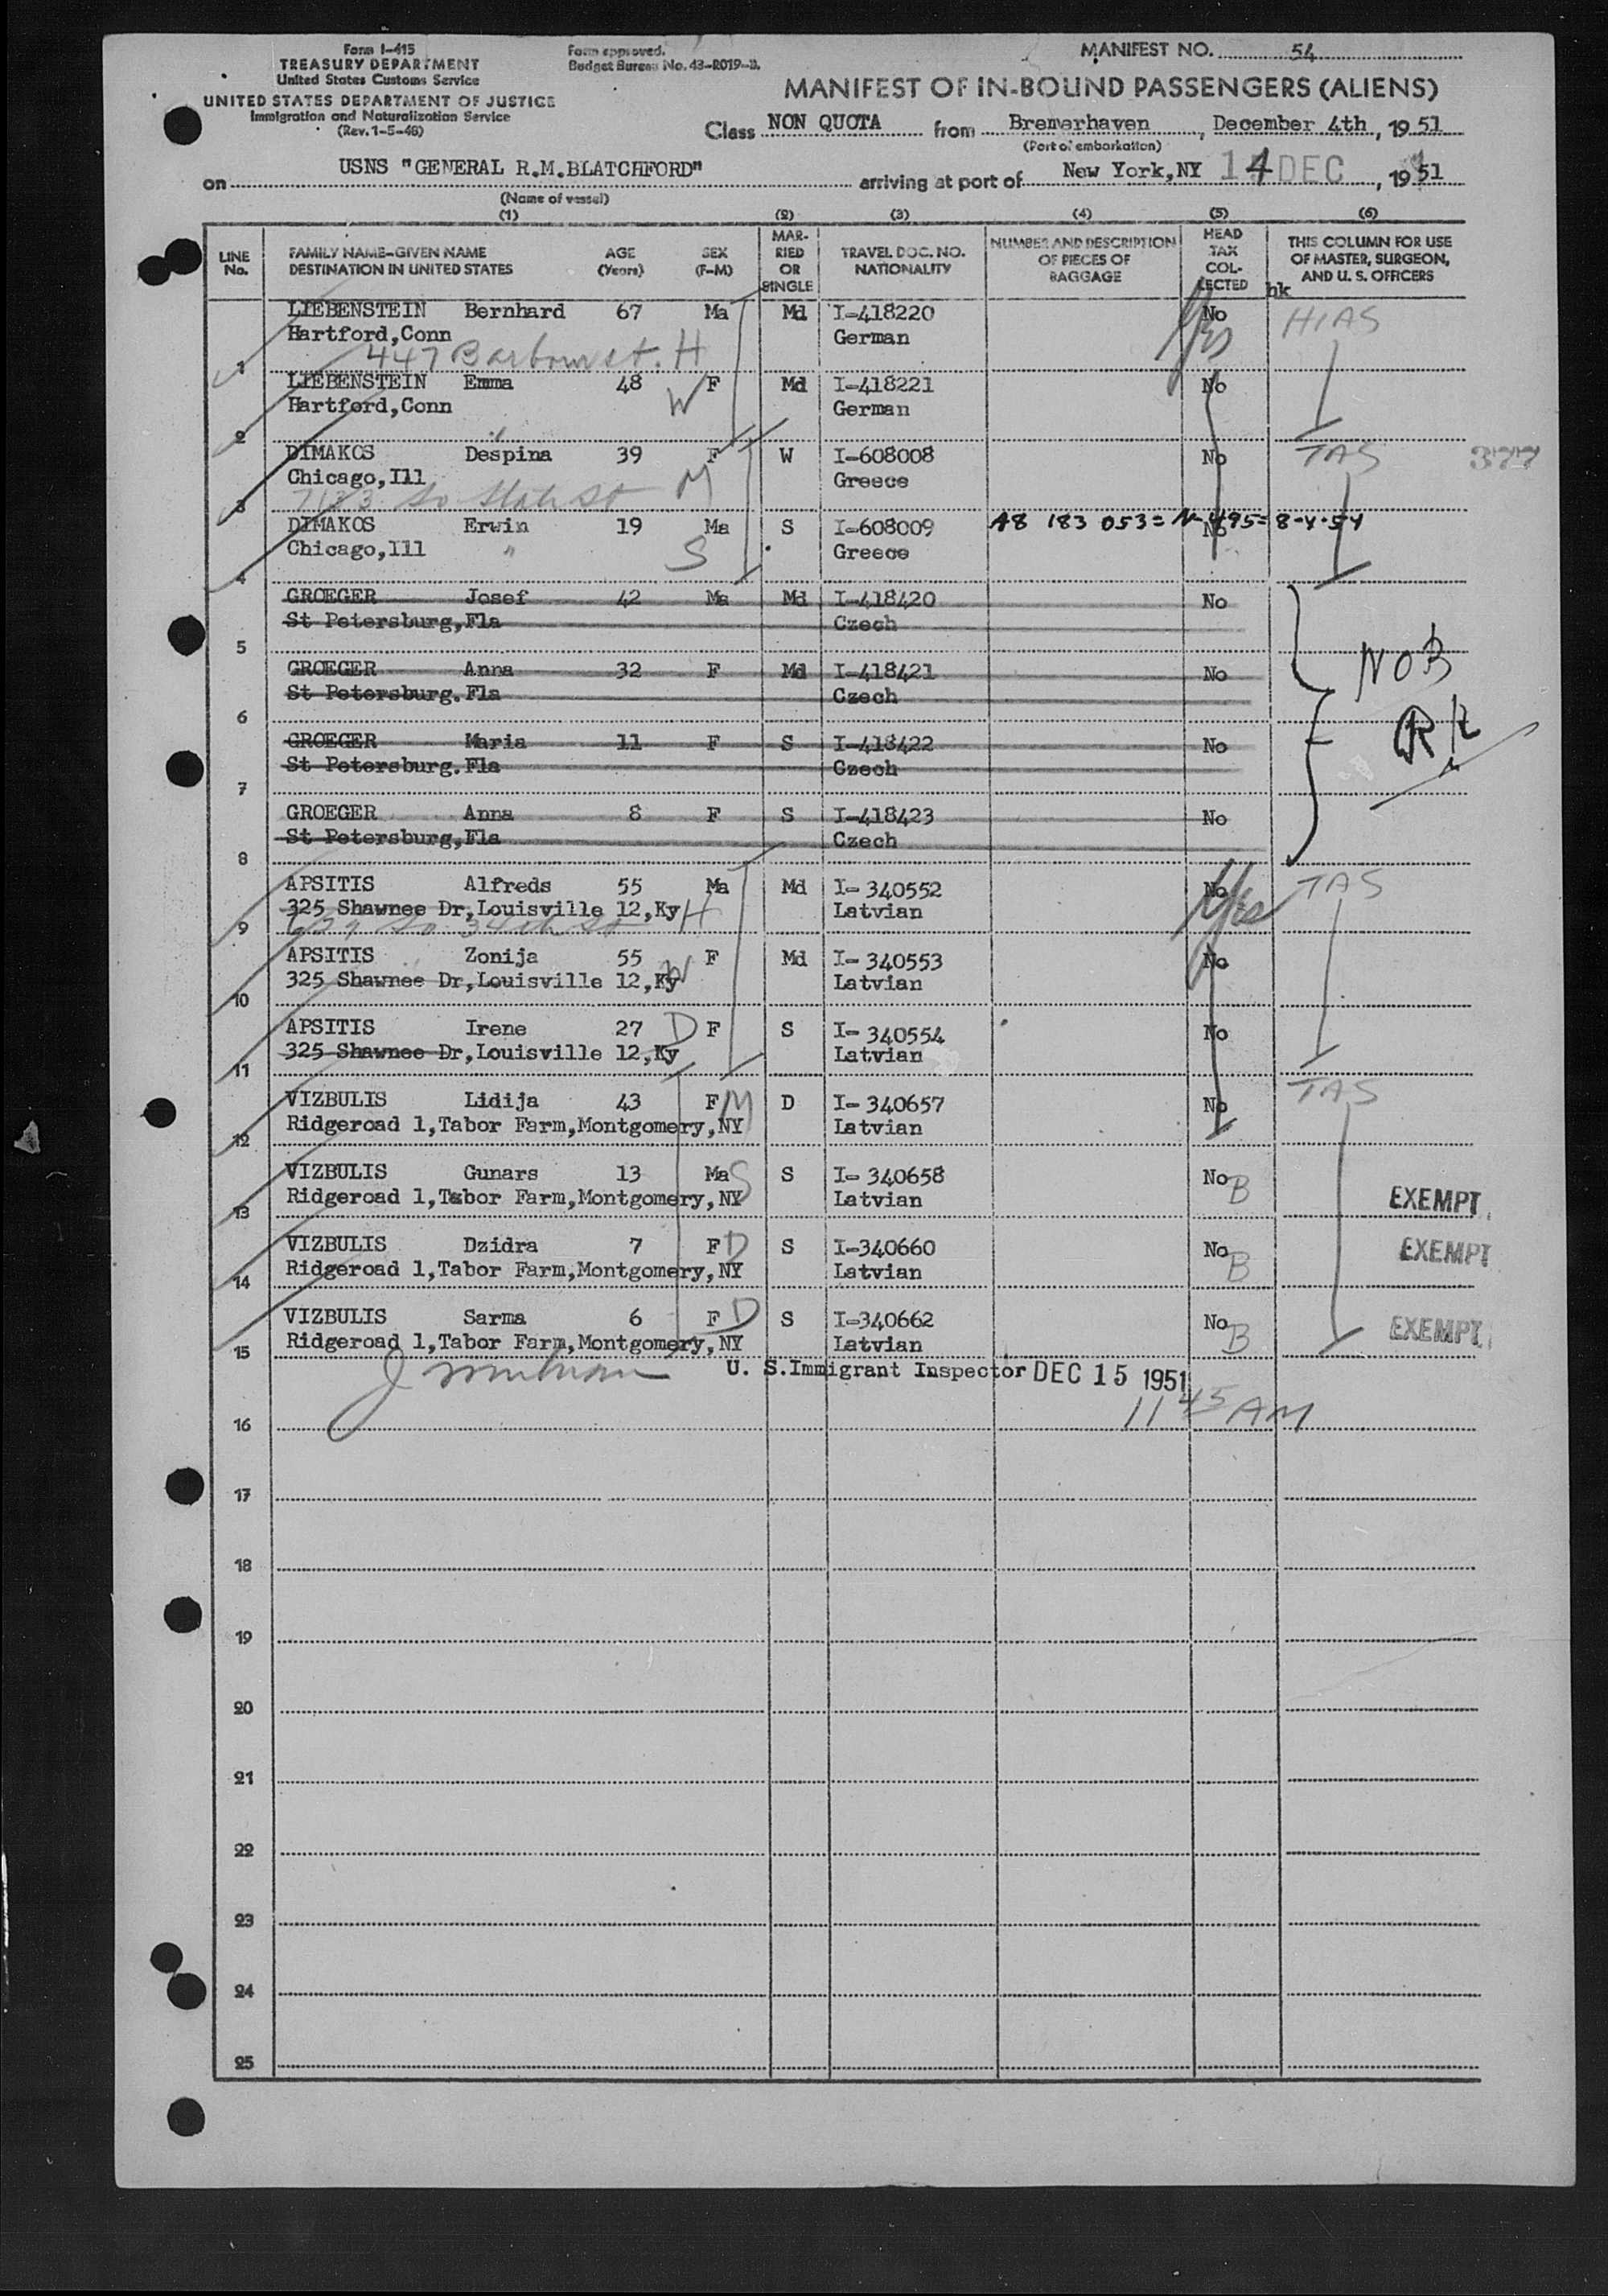 Form I-415
TREASURY DEPARTMENT
United States Customs Service
UNITED STATES DEPARTMENT OF JUSTICE
Immigration and Naturalization Service
(Rev. 1-5-48)
Form approved.
Budget Bureau No. 43-R019-3.
MANIFEST NO. 54
MANIFEST OF IN-BOUND PASSENGERS (ALIENS)
Class NON QUOTA from Bremerhaven, December 4th, 1951
(Port of embarkation)
on USNS "GENERAL R.M.BLATCHFORD" arriving at port of New York,NY 14 DEC, 1951
(Name of vessel)
(1) (2) (3) (4) (5) (6)
LINE No. FAMILY NAME-GIVEN NAME DESTINATION IN UNITED STATES AGE (Years) SEX (F-M) MAR-RIED OR SINGLE TRAVEL DOC. NO. NATIONALITY NUMBER AND DESCRIPTION OF PIECES OF BAGGAGE HEAD TAX COL-LECTED THIS COLUMN FOR USE OF MASTER, SURGEON, AND U. S. OFFICERS
hk
LIEBENSTEIN Bernhard 67 Ma Md I-418220 No Yes HIAS
Hartford,Conn German
1 447 Barbour st. H
LIEBENSTEIN Emma 48 W F Md I-418221 No
Hartford,Conn German
2 "
DIMAKOS Despina 39 F W I-608008 No TAS 377
Chicago,Ill M Greece
3 So State St
DIMAKOS Erwin 19 Ma S I-608009 A8 183 053= No
Chicago,Ill " S Greece
4
GROEGER Josef 42 Ma Md I-418420 No
St Petersburg,Fla Czech
5 NOB
GROEGER Anna 32 F Md I-418421 No
St Petersburg.Fla Czech
6
GROEGER Maria 11 F S I-418422 No
St Petersburg.Fla Czech
7
GROEGER Anna 8 F S I-418423 No
St Petersburg,Fla Czech
8
APSITIS Alfreds 55 Ma Md I- 340552 No Yes TAS
325 Shawnee Dr,Louisville 12,Ky H Latvian
9 So 34th St
APSITIS Zonija 55 F Md I- 340553 No
325 Shawnee Dr,Louisville 12,Ky W Latvian
10
APSITIS Irene 27 D F S I- 340554 No
325 Shawnee Dr,Louisville 12,Ky Latvian
11
VIZBULIS Lidija 43 F M D I- 340657 No TAS
Ridgeroad 1,Tabor Farm,Montgomery,NY Latvian
12
VIZBULIS Gunars 13 Ma S S I- 340658 No B
Ridgeroad 1,Tabor Farm,Montgomery,NY Latvian EXEMPT
13
VIZBULIS Dzidra 7 F D S I-340660 No B EXEMPT
Ridgeroad 1,Tabor Farm,Montgomery,NY Latvian
14
VIZBULIS Sarma 6 F D S I-340662 No B EXEMPT
Ridgeroad 1,Tabor Farm,Montgomery,NY Latvian
15
U. S.Immigrant Inspector DEC 15 1951
11 45 AM
16
17
18
19
20
21
22
23
24
25